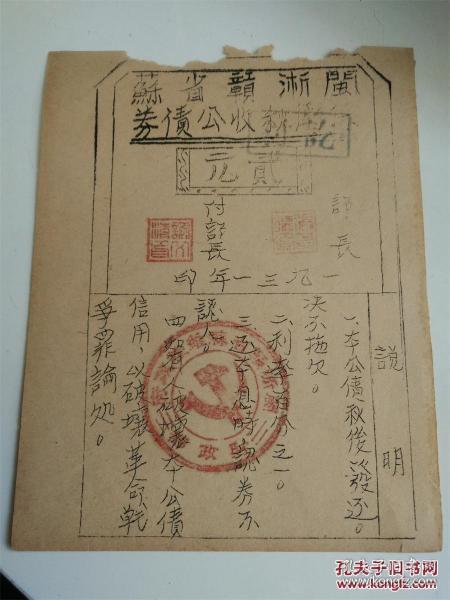 閩浙贛省蘇
秋收公債券
貳元
部長
付部長
一九三一年印
說明
一、本公債秋後發还。
決不拖欠。
二、利率百分之一。
三、还本息時認券不
認人。
四、若人破壞本公債
信用，以破壞革命戰
爭罪論処。
財政
孔夫子旧书网
www.kongfz.com